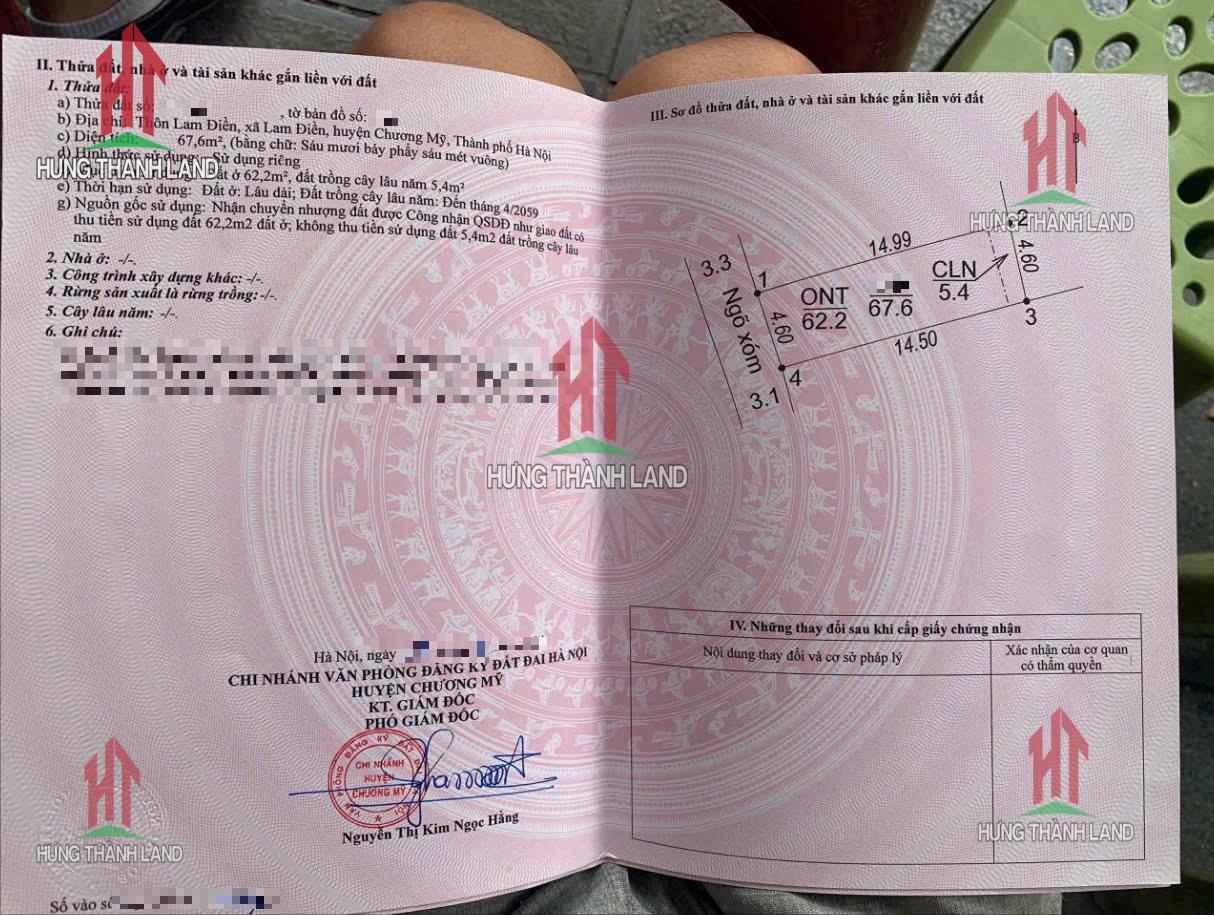 II. Thửa đất, nhà ở và tài sản khác gắn liền với đất
1. Thửa đất:
a) Thửa đất số: , tờ bản đồ số:
b) Địa chỉ: Thôn Lam Điền, xã Lam Điền, huyện Chương Mỹ, Thành phố Hà Nội
c) Diện tích: 67,6m², (bằng chữ: Sáu mươi bảy phẩy sáu mét vuông)
d) Hình thức sử dụng: Sử dụng riêng
đất ở 62,2m², đất trồng cây lâu năm 5,4m²
e) Thời hạn sử dụng: Đất ở: Lâu dài; Đất trồng cây lâu năm: Đến tháng 4/2059
g) Nguồn gốc sử dụng: Nhận chuyển nhượng đất được Công nhận QSDĐ như giao đất có
thu tiền sử dụng đất 62,2m2 đất ở; không thu tiền sử dụng đất 5,4m2 đất trồng cây lâu
năm
2. Nhà ở: -/-.
3. Công trình xây dựng khác: -/-.
4. Rừng sản xuất là rừng trồng: -/-.
5. Cây lâu năm: -/-.
6. Ghi chú:
Hà Nội, ngày
CHI NHÁNH VĂN PHÒNG ĐĂNG KÝ ĐẤT ĐAI HÀ NỘI
HUYỆN CHƯƠNG MỸ
KT. GIÁM ĐỐC
PHÓ GIÁM ĐỐC
VĂN PHÒNG ĐĂNG KÝ ĐẤT ĐAI HÀ NỘI
CHI NHÁNH
HUYỆN
CHƯƠNG MỸ
Nguyễn Thị Kim Ngọc Hằng
Số vào sổ
III. Sơ đồ thửa đất, nhà ở và tài sản khác gắn liền với đất
B
2
14.99
4.60
3.3
1
ONT
62.2
67.6
CLN
5.4
Ngõ xóm
4.60
3
14.50
4
3.1
IV. Những thay đổi sau khi cấp giấy chứng nhận
Nội dung thay đổi và cơ sở pháp lý
Xác nhận của cơ quan
có thẩm quyền
HƯNG THÀNH LAND
HƯNG THÀNH LAND
HƯNG THÀNH LAND
HƯNG THÀNH LAND
HƯNG THÀNH LAND